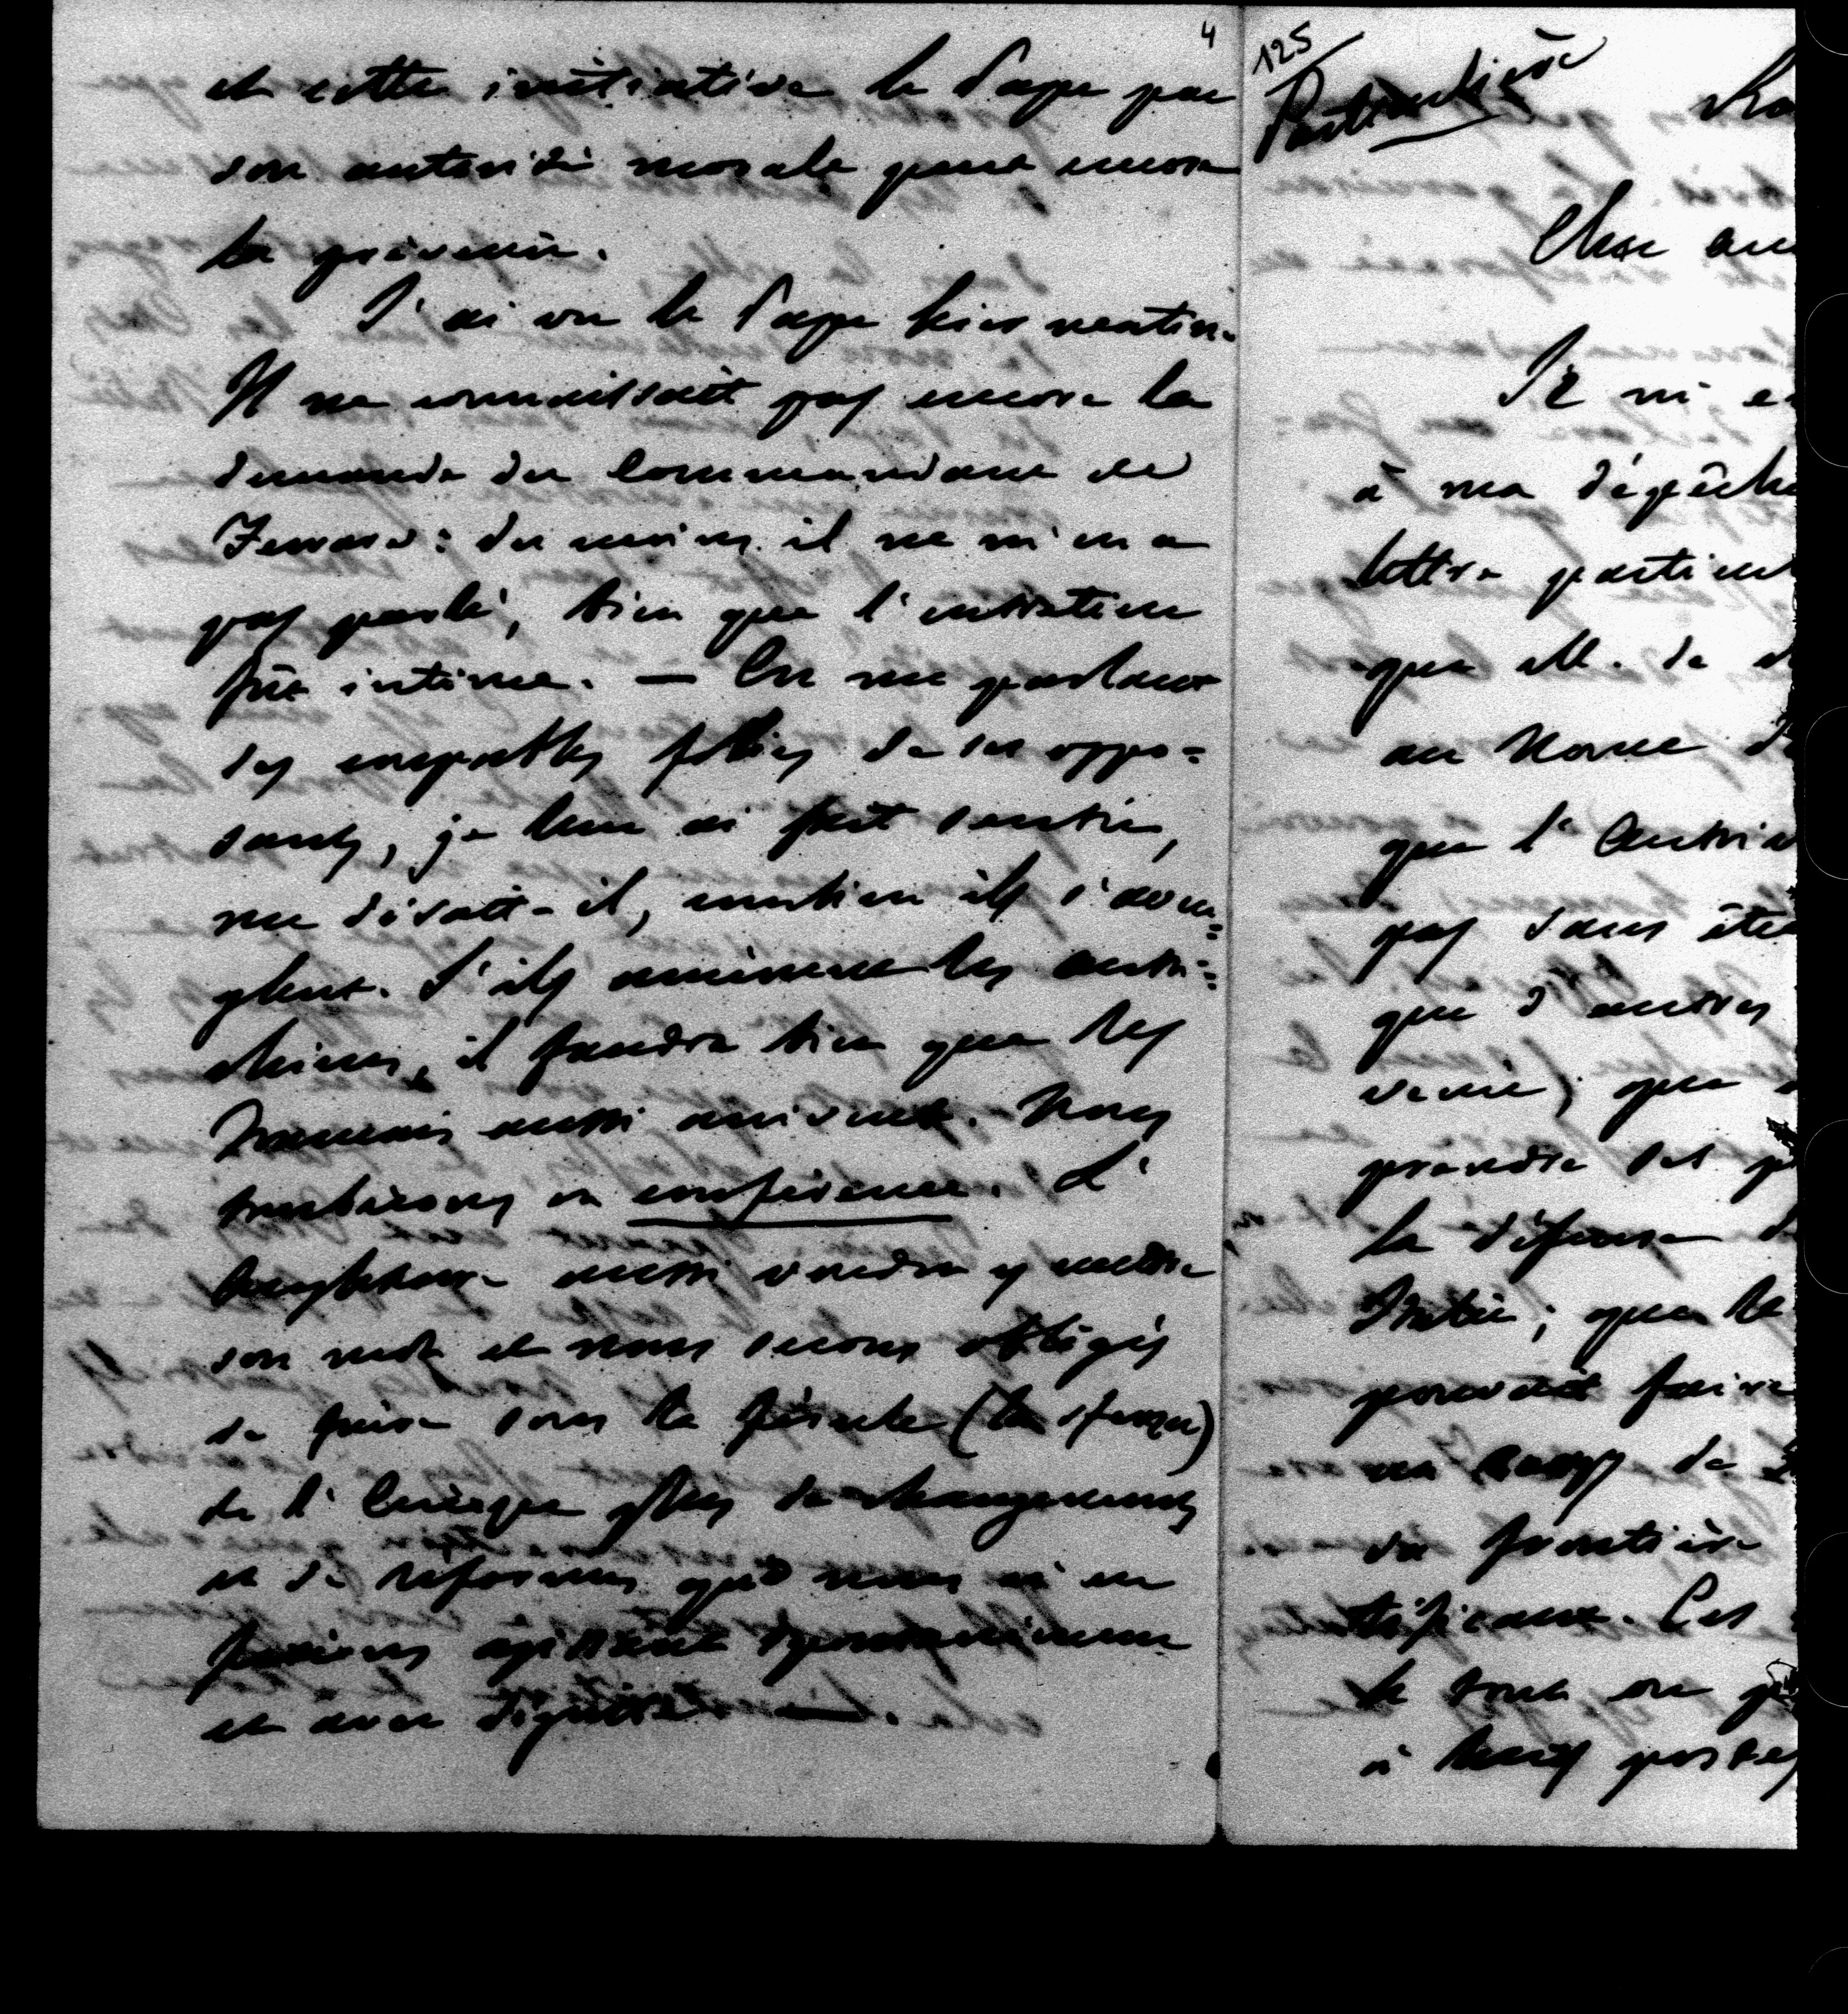 4
et cette initiative le Pape par
son autorité morale peut encore
la prévenir.
J'ai vu le Pape hier matin.
Il ne connaissait pas encore la
demande du Commandant de
Ferrare: du moins il ne m'en a
pas parlé, bien que l'entretien
fût intime. — En me parlant
des incroyables folies de ses oppo=
sants, je leur ai fait sentir,
me disait-il, combien ils s'aveu=
glent. S'ils amènent les autri=
chiens, il faudra bien que les
Français aussi arrivent. Nous
tomberons en conférence. L'
Angleterre aussi voudra y mettre
son mot et nous serons obligés
de faire sous la férule (la sferza)
de l'Europe plus de changements
et de réformes que nous n'en
ferions agissant spontanément
et avec dignité —.
125
Particulière
Ro
Cher am
Il m'e
à ma dépêche
lettre particul
que M. de
au Nonce
que l'Autri
pas sans
que d'autres
venir; que
prendre ses
la défense
Italie; que le
pouvait faire
un corps de
du frontière
tificaux. Ces
le tout on
à leurs postes